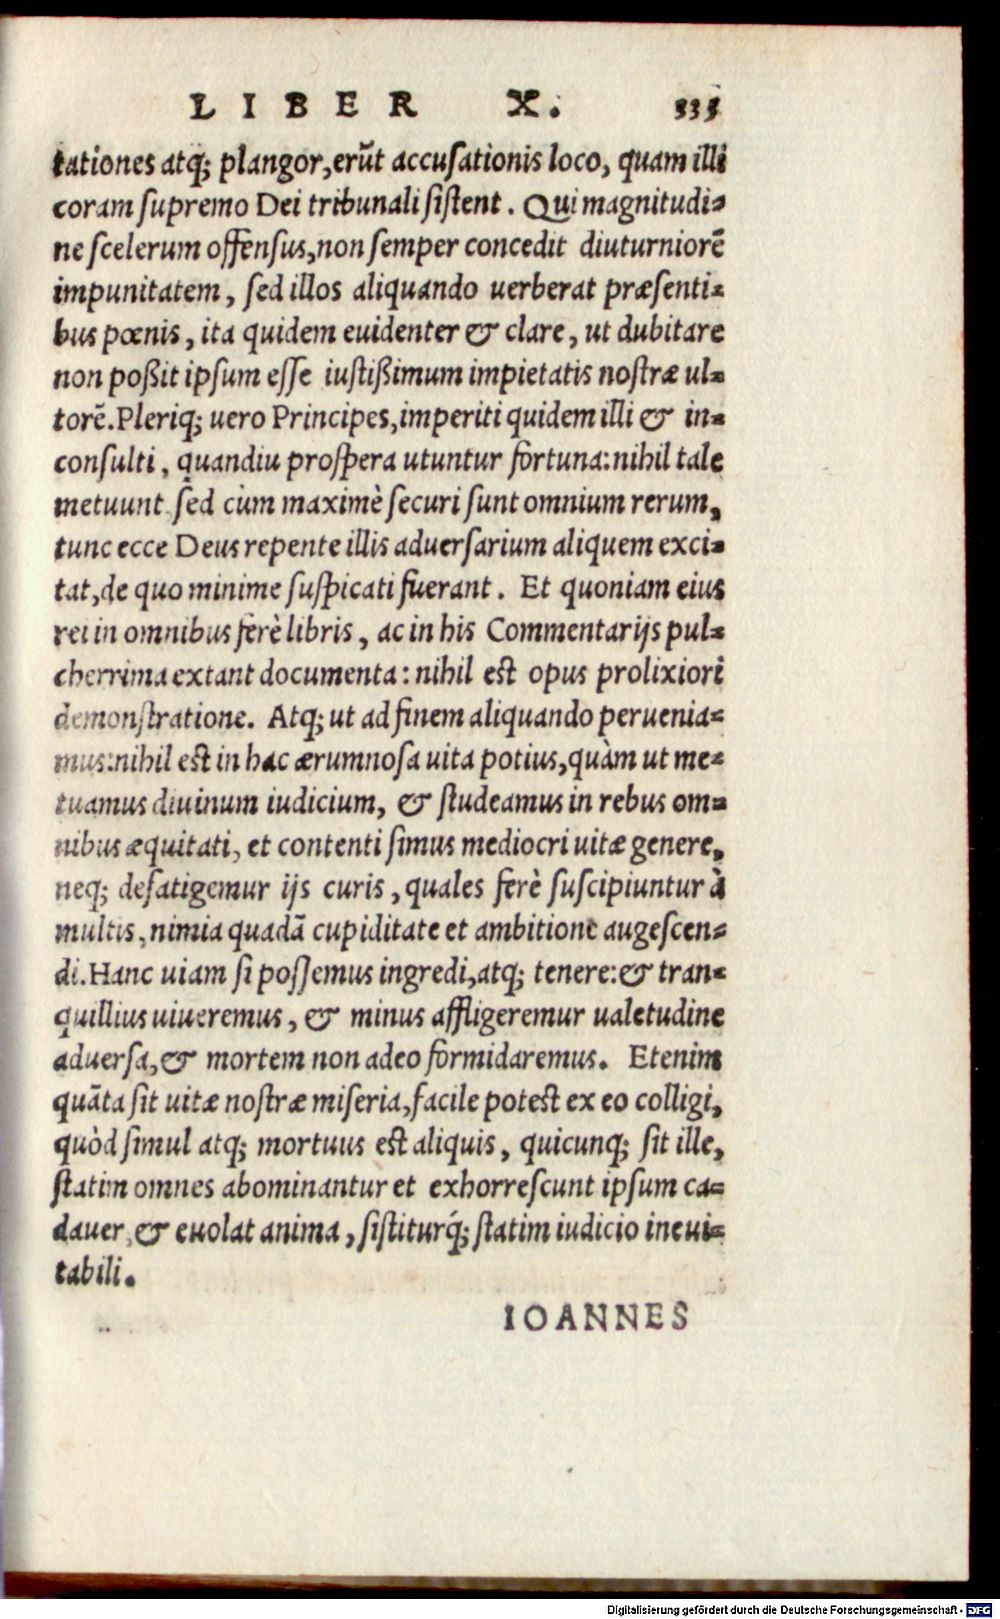 LIBER X. 335
tationes atq; plangor, erũt accusationis loco, quam illi
coram supremo Dei tribunali sistent. Qui magnitudi-
ne scelerum offensus, non semper concedit diuturniorẽ
impunitatem, sed illos aliquando uerberat præsenti-
bus pœnis, ita quidem euidenter & clare, ut dubitare
non poßit ipsum esse iustißimum impietatis nostræ ul-
torẽ. Pleriq; uero Principes, imperiti quidem illi & in-
consulti, quandiu prospera utuntur fortuna: nihil tale
metuunt sed cùm maximè securi sunt omnium rerum,
tunc ecce Deus repente illis aduersarium aliquem exci-
tat, de quo minime suspicati fuerant. Et quoniam eius
rei in omnibus ferè libris, ac in his Commentarijs pul-
cherrima extant documenta: nihil est opus prolixiori
demonstratione. Atq; ut ad finem aliquando peruenia-
mus: nihil est in hac ærumnosa uita potius, quàm ut me-
tuamus diuinum iudicium, & studeamus in rebus om-
nibus æquitati, et contenti simus mediocri uitæ genere,
neq; defatigemur ijs curis, quales ferè suscipiuntur à
multis, nimia quadã cupiditate et ambitione augescen-
di. Hanc uiam si possemus ingredi, atq; tenere: & tran-
quillius uiueremus, & minus affligeremur ualetudine
aduersa, & mortem non adeo formidaremus. Etenim
quãta sit uitæ nostræ miseria, facile potest ex eo colligi,
quòd simul atq; mortuus est aliquis, quicunq; sit ille,
statim omnes abominantur et exhorrescunt ipsum ca-
dauer, & euolat anima, sistiturq́; statim iudicio ineui-
tabili.
IOANNES
Digitalisierung gefördert durch die Deutsche Forschungsgemeinschaft - DFG